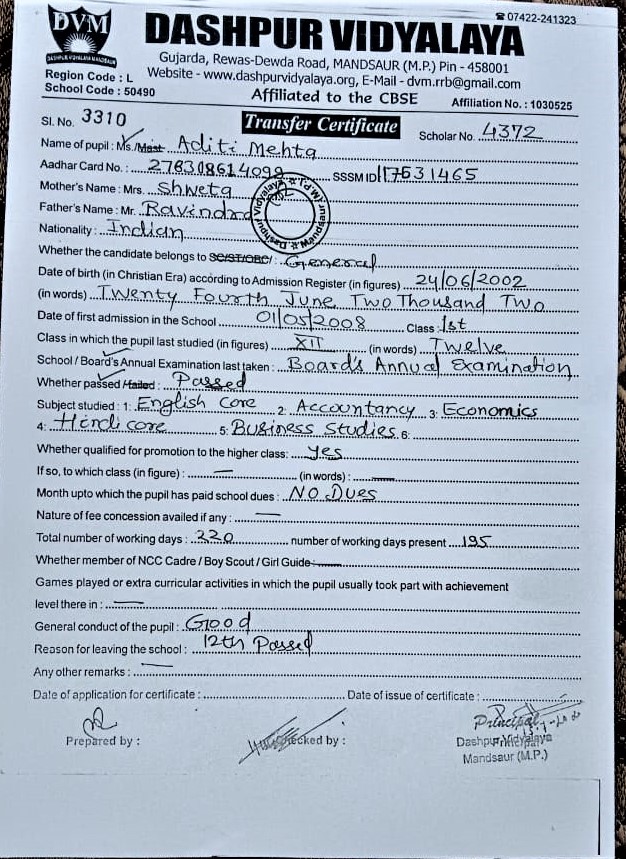 ☎ 07422-241323
DVM
DASHPUR VIDYALAYA MANDSAUR
DASHPUR VIDYALAYA
Gujarda, Rewas-Dewda Road, MANDSAUR (M.P.) Pin - 458001
Region Code : L
Website - www.dashpurvidyalaya.org, E-Mail - dvm.rrb@gmail.com
School Code : 50490
Affiliated to the CBSE
Affiliation No. : 1030525
Sl. No. 3310
Transfer Certificate
Scholar No. 4372
Name of pupil : Ms./Mast. Aditi Mehta
Aadhar Card No. : 278308614099 SSSM ID 117531465
Mother's Name : Mrs. Shweta
Father's Name : Mr. Ravindra
Dashpur Vidyalaya ★ Mandsaur (M.P.) ★
Nationality : Indian
Whether the candidate belongs to SC/ST/OBC/ : General
Date of birth (in Christian Era) according to Admission Register (in figures) 24/06/2002
(in words) Twenty Fourth June Two Thousand Two
Date of first admission in the School 01/05/2008 Class : 1st
Class in which the pupil last studied (in figures) XII (in words) Twelve
School / Board's Annual Examination last taken : Board's Annual Examination
Whether passed / failed : Passed
Subject studied : 1: English Core 2: Accountancy 3: Economics
4: Hindi core 5: Business Studies 6:
Whether qualified for promotion to the higher class: yes
If so, to which class (in figure) : — (in words) : —
Month upto which the pupil has paid school dues : NO DUES
Nature of fee concession availed if any : —
Total number of working days : 220 number of working days present 195
Whether member of NCC Cadre / Boy Scout / Girl Guide —
Games played or extra curricular activities in which the pupil usually took part with achievement
level there in : —
General conduct of the pupil : Good
Reason for leaving the school : 12th Passed
Any other remarks : —
Date of application for certificate : Date of issue of certificate :
Principal
Prepared by :
Checked by :
Dashpur Vidyalaya
Principal
Mandsaur (M.P.)